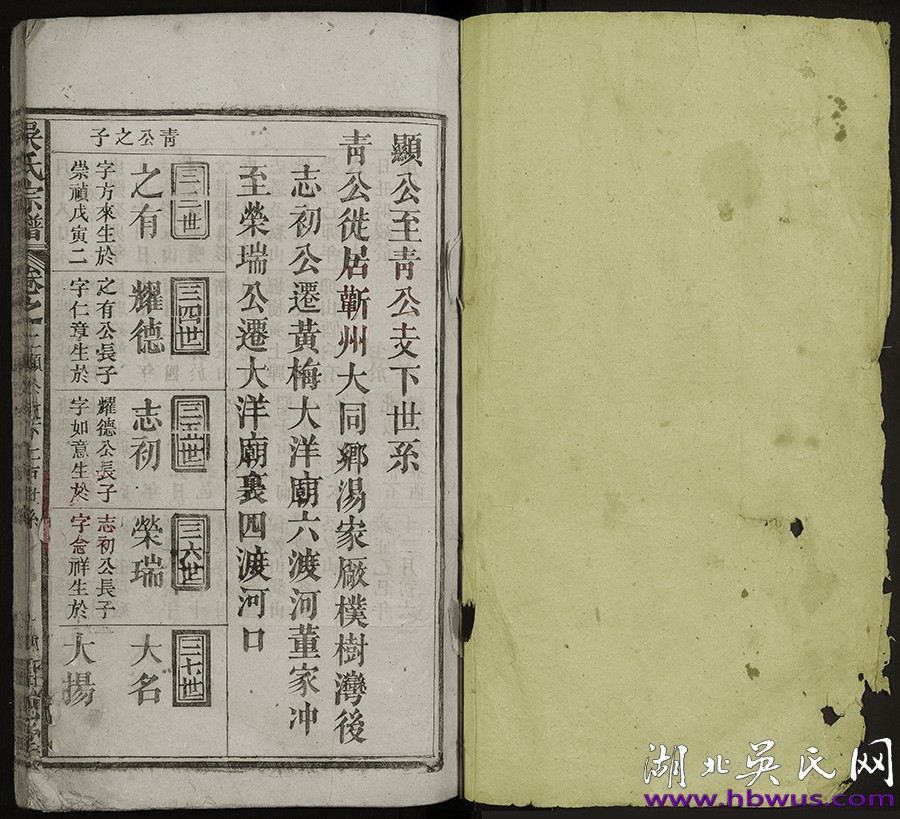 顯公至青公支下世系
青公徙居蘄州大同鄉湯家厰樸樹灣後
志初公遷黃梅大洋廟六渡河董家冲
至榮瑞公遷大洋廟裏四渡河口
青公之子
三三世
之有
字方來生於
崇禎戊寅二
三四世
耀德
之有公長子
字仁章生於
三五世
志初
耀德公長子
字如意生於
三六世
榮瑞
志初公長子
字念祥生於
三七世
大名
大揚
吳氏宗譜
卷之一
湖北吳氏网
www.hbwus.com